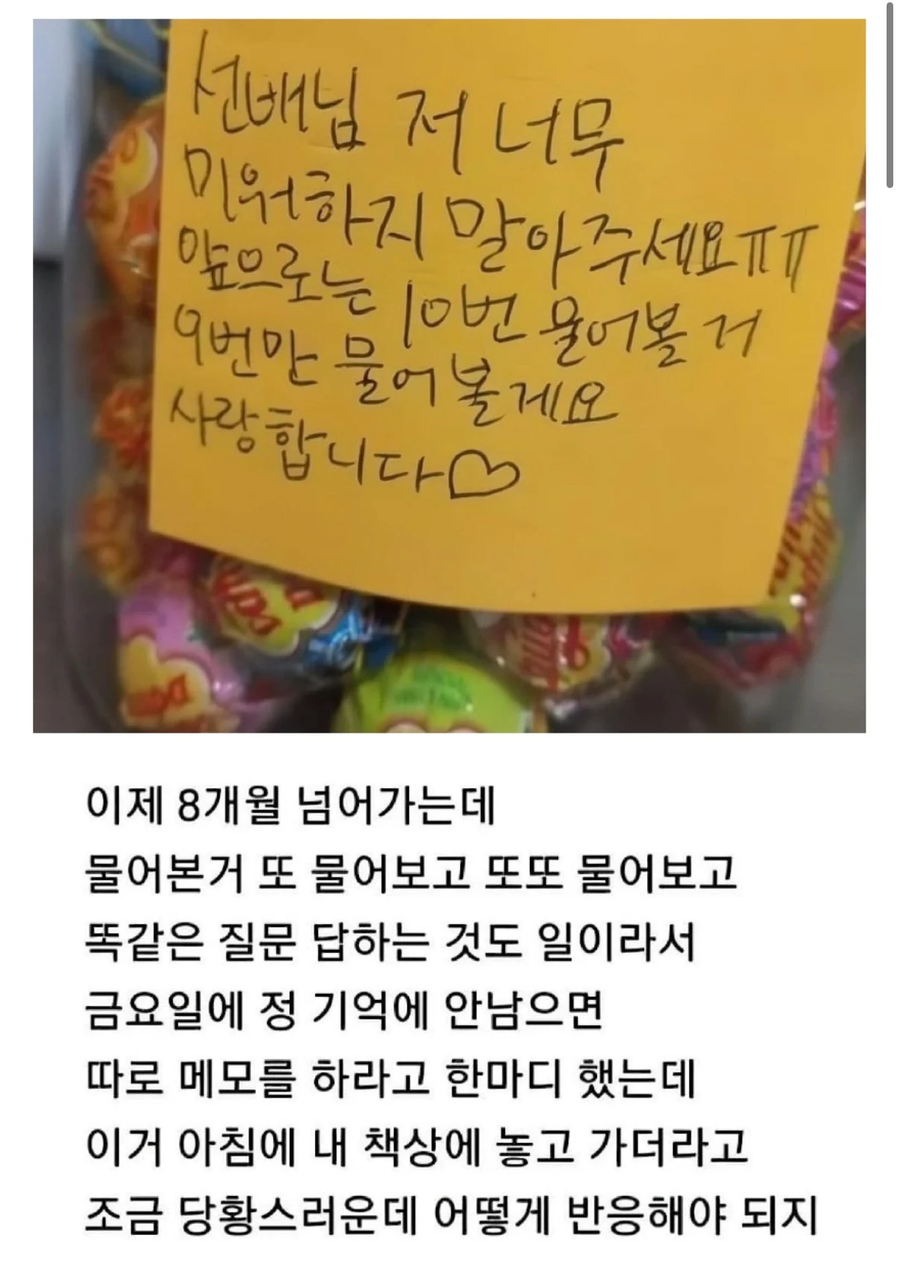 선배님 저 너무
미워하지 말아주세요ㅠㅠ
앞으로는 10번 물어볼 거
9번만 물어볼게요
사랑합니다♡
이제 8개월 넘어가는데
물어본거 또 물어보고 또또 물어보고
똑같은 질문 답하는 것도 일이라서
금요일에 정 기억에 안남으면
따로 메모를 하라고 한마디 했는데
이거 아침에 내 책상에 놓고 가더라고
조금 당황스러운데 어떻게 반응해야 되지